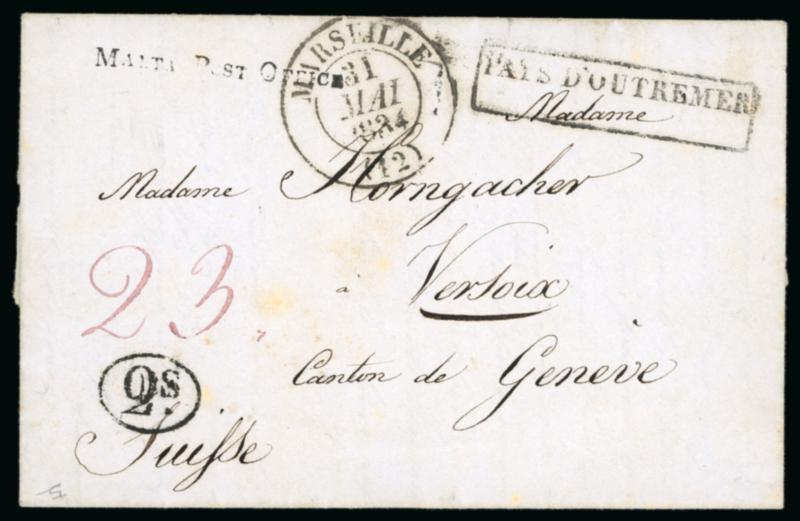 MALTA POST OFFICE
MARSEILLE
31
MAI
1834
(12)
PAYS D'OUTREMER
Madame
Madame Horngacher
à Versoix
Canton de Genève
23.
2s
Suisse